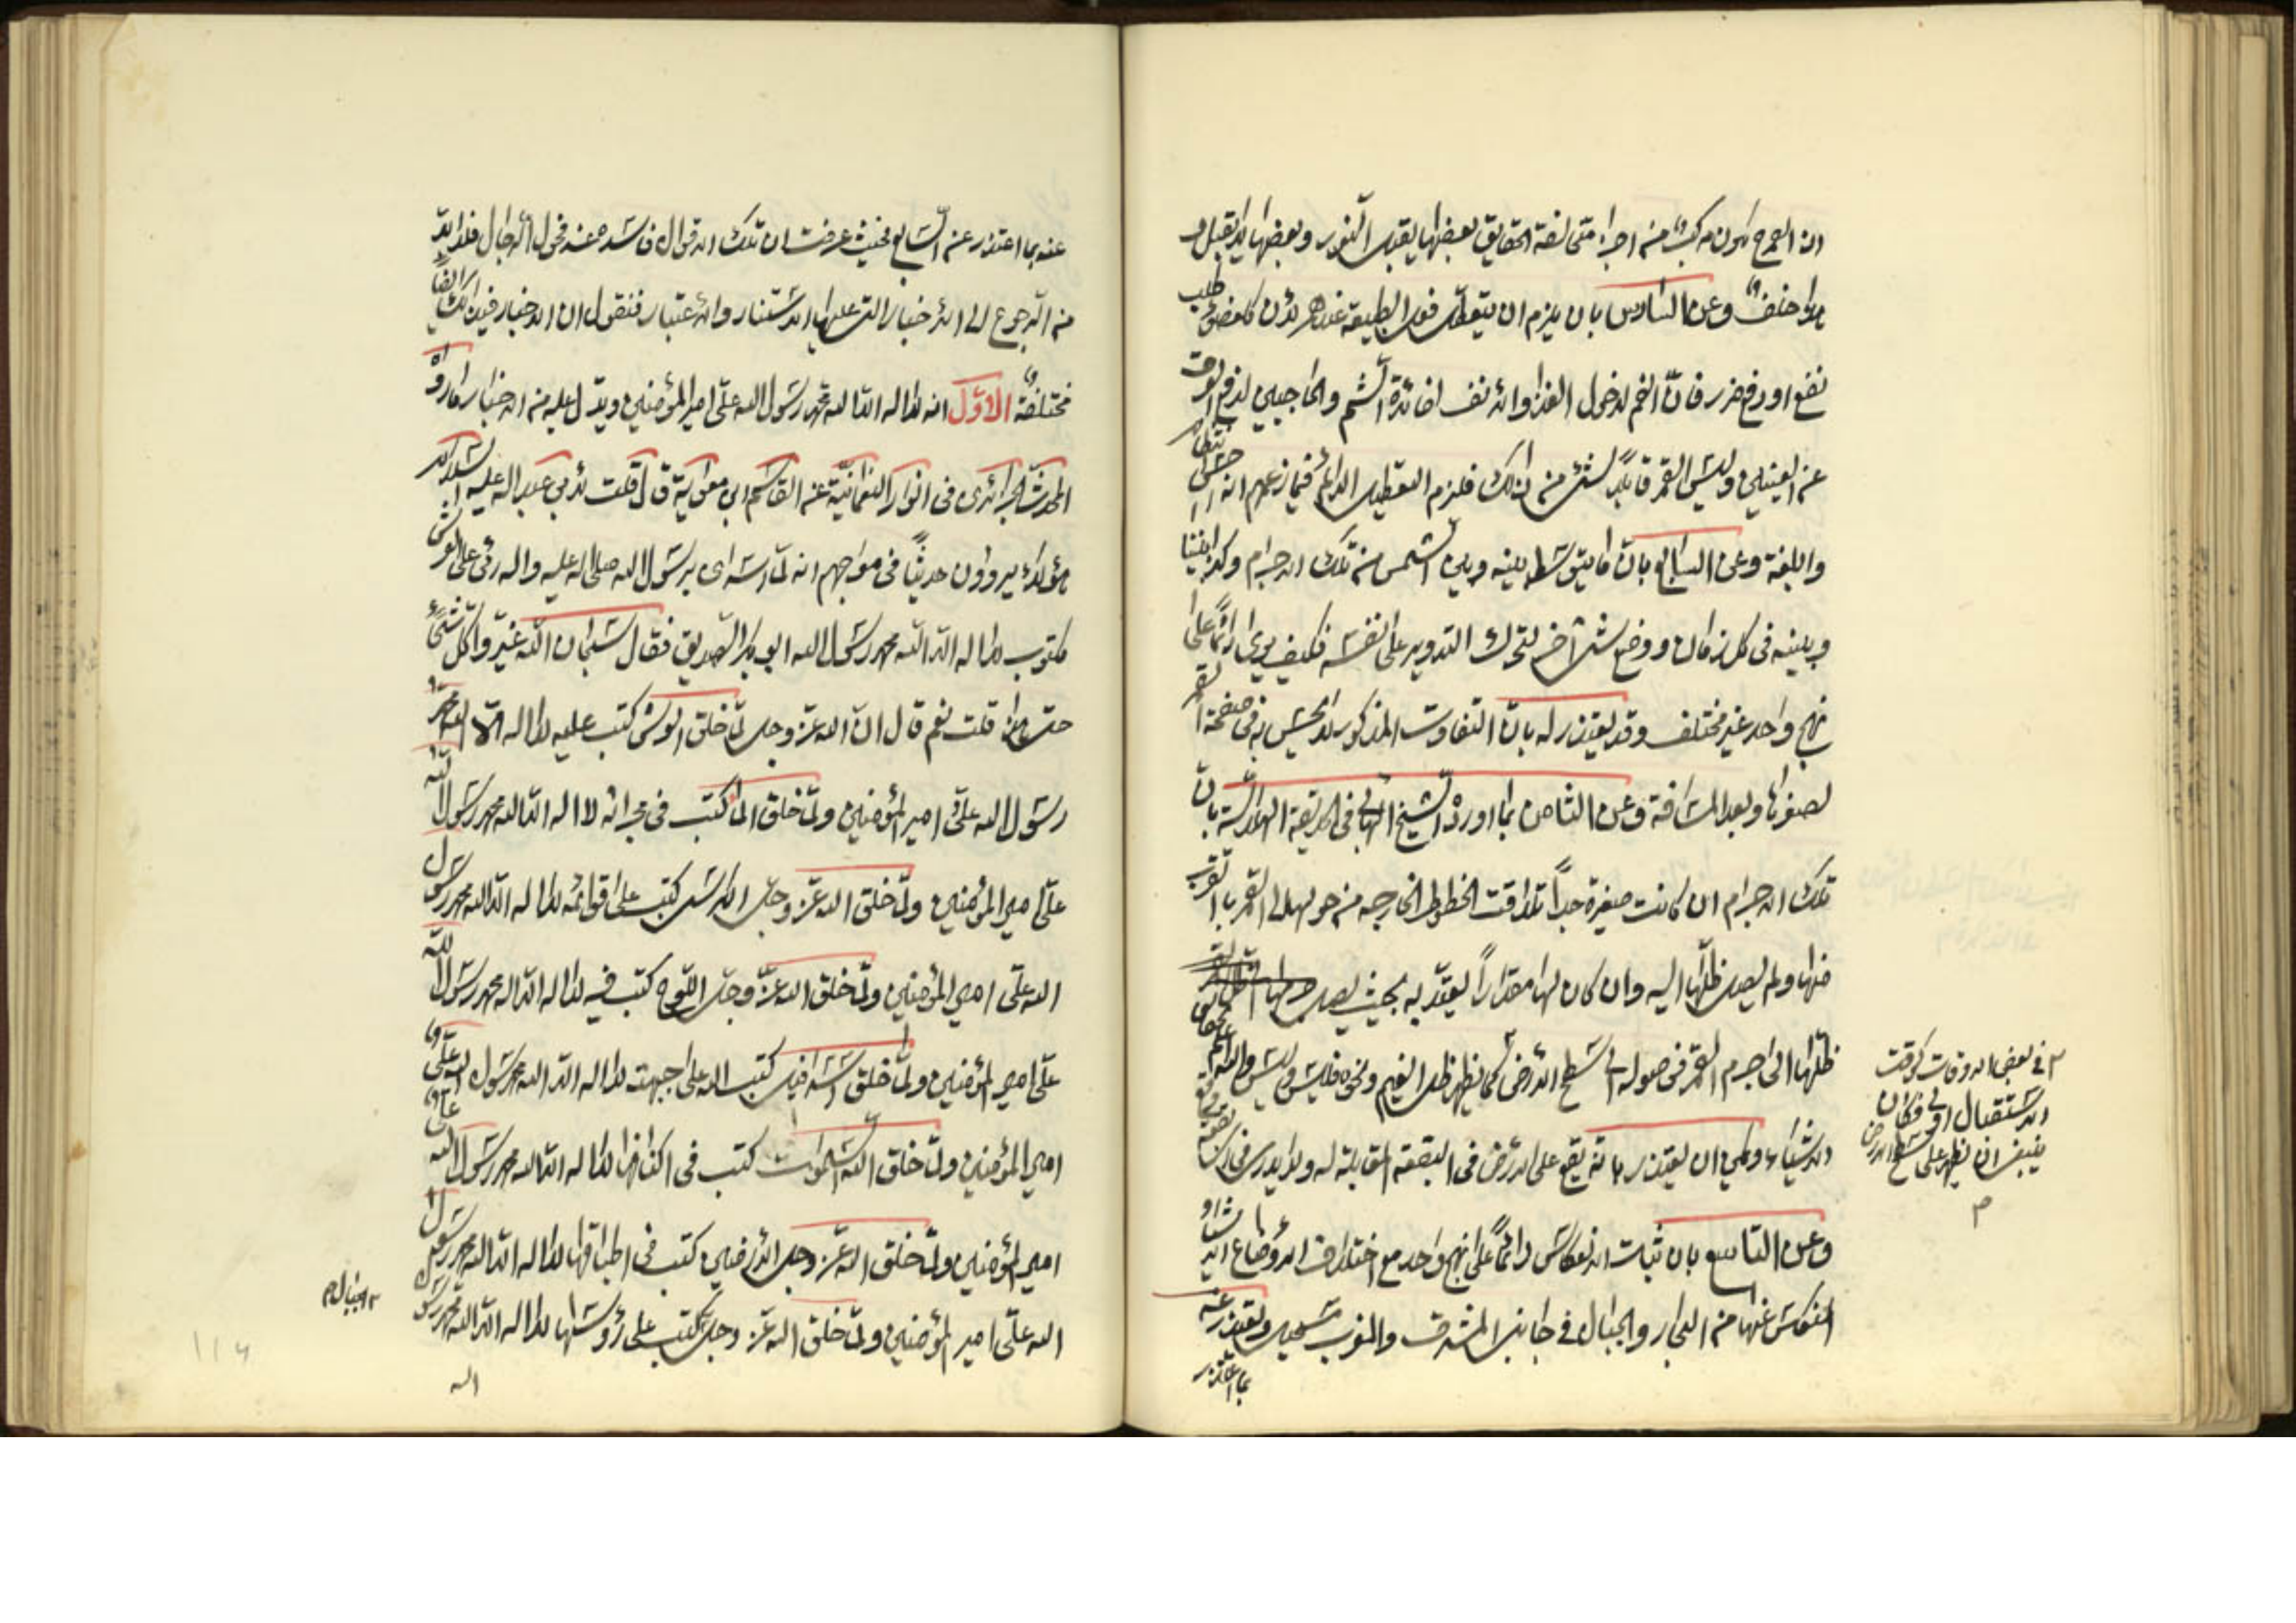 ان العمر ح يكون مركبا من اجزاء متخالفة الحقايق بعضها يقبل النور وبعضها لا يقبل و
هذا خلف وعن السادس بان يلزم ان يتعطل فعل الطبيعة عندهم لان كل عضو طلب
نفع او دفع ضرر فان الفم لدخول الغذا والانف لفائدة الشم والحاجبين لدفع العرق
عن العينين وليس القمر قابلا لشئ من ذلك فلزم التعطيل الدائم فيما زعمهم انه
وعن السابع بان ما يتوسط بينه وبين الشمس من تلك الاجرام وكذا بيننا
وبينه في كل زمان ووضع شئ آخر لتحرك التدوير على نفسه فكيف يرى دائما على
نهج واحد غير مختلف وقد يعتذر له بان التفاوت المذكور لا يحس به في صفحة القمر
لصغرها وبعد المسافة وعن الثامن بما اورده الشيخ البهائي في الحديقة الهلالية بان
تلك الاجرام ان كانت صغيرة جدا تلاقت الخطوط الخارجه من حولها الى القمر بالقرب
منها ولم يصل ظلها اليه وان كان لها مقدارا يعتد به بحيث يصل
ظلها الى جرم القمر فوصوله الى سطح الارض كما يظهر ظل الغيم ونحوه فليس وليس
الاشياء ويمكن ان يعتذر بانه يقع على الارض في البقعة المقابلة له ولا يدري في
وعن التاسع بان ثبات الانعكاس دائما على نهج واحد مع اختلاف اوضاع الاشياء
المنعكس عنها من البحار والجبال في جانب المشرق والمغرب مستحيل ويعتذر عنه
بما اعتذر
في بعض الاوقات كوقت
الاستقبال اولى فكان
ينبغي ان يظهر على سطح الارض
م
عنه بما اعتذر عن السابع فحيث عرفت ان تلك الاقوال فاسدة عند فحول الرجال فلا بد
من الرجوع الى الاخبار التي عليها الاستناد والاعتبار فنقول ان الاخبار في ذلك ايضا
مختلفة الاول انه لا اله الا الله محمد رسول الله علي امير المؤمنين ويدل عليه من الاخبار ما رواه
المحدث الجزائري في انوار النعمانية عن القاسم ابن معوية قال قلت لابي عبد الله عليه السلام
هؤلاء يروون حديثا في معراجهم انه لما اسرى برسول الله صلى الله عليه واله رأى على العرش
مكتوب لا اله الا الله محمد رسول الله ابو بكر الصديق فقال سبحان الله غيروا كل شئ
حتى هذا قلت نعم قال ان الله عز وجل لما خلق العرش كتب عليه لا اله الا الله محمد
رسول الله علي امير المؤمنين ولما خلق الماء كتب في مجراه لا اله الا الله محمد رسول الله
علي امير المؤمنين ولما خلق الله عز وجل الكرسي كتب على قوائمه لا اله الا الله محمد رسول
الله علي امير المؤمنين ولما خلق الله عز وجل اللوح كتب فيه لا اله الا الله محمد رسول الله
علي امير المؤمنين ولما خلق اسرافيل كتب الله على جبهته لا اله الا الله محمد رسول الله علي
امير المؤمنين ولما خلق الله السموات كتب في اكنافها لا اله الا الله محمد رسول الله علي
امير المؤمنين ولما خلق الله عز وجل الارضين كتب في اطباقها لا اله الا الله محمد رسول
الله علي امير المؤمنين ولما خلق الله عز وجل كتب على رؤسها لا اله الا الله محمد رسول
الجبال م
الله